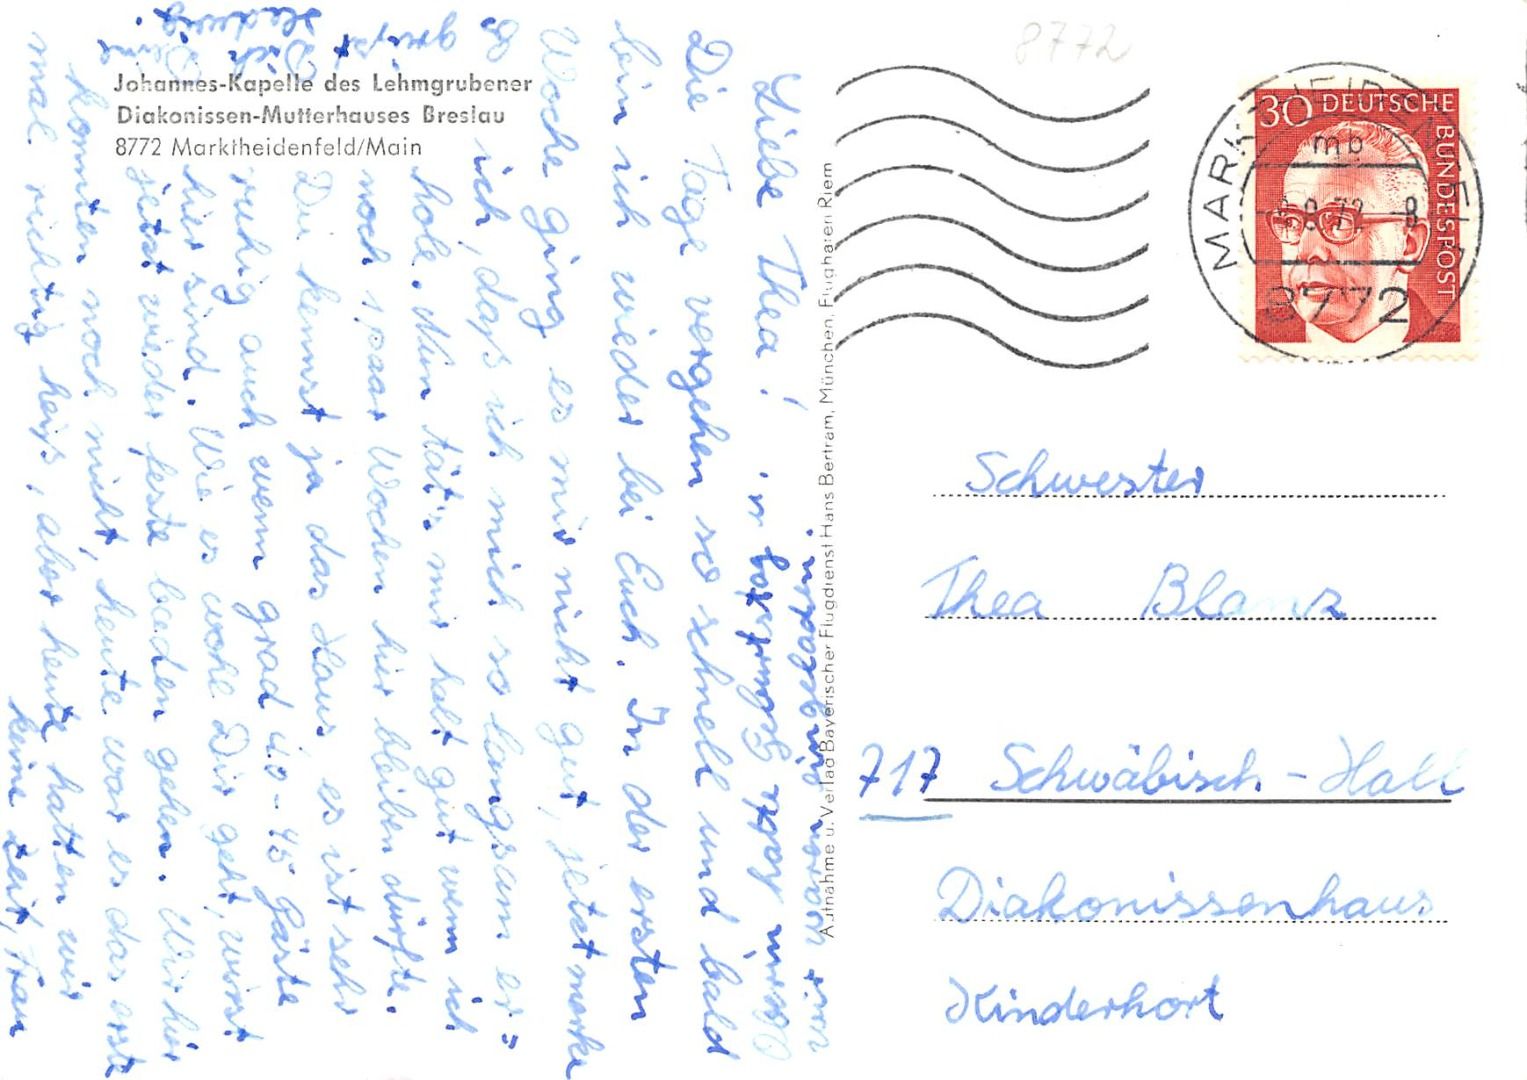 Johannes-Kapelle des Lehmgrubener
Diakonissen-Mutterhauses Breslau
8772 Marktheidenfeld/Main
Liebe Thea!
Die Tage vergehen so schnell und bald
bin ich wieder bei Euch. In der ersten
Woche ging es mir nicht gut, jetzt merke
ich, daß ich mich so langsam er=
hole. Nun tät's mir halt gut wenn ich
noch spaar Wochen hier bleiben dürfte.
Du kennst ja das Haus, es ist sehr
ruhig auch wenn grad 40-45 Gäste
hier sind. Wie es wohl Dir geht, wirst
jetzt wieder feste baden gehen. Wir hier
konnten noch nicht, heute war es das erste
mal richtig heiß, aber heute hatten wir
keine Zeit, Frau
Oberin Geburtstag u.
wir waren eingeladen.
Es grüßt
Dich
Deine
Hedwig.
Aufnahme u. Verlag Bayerischer Flugdienst Hans Bertram, München, Flughafen Riem
8772
30 DEUTSCHE
BUNDESPOST
MARKTHEIDENFELD
mb
8.72 -8
8772
Schwester
Thea Blanz
717 Schwäbisch-Hall
Diakonissenhaus
Kinderhort